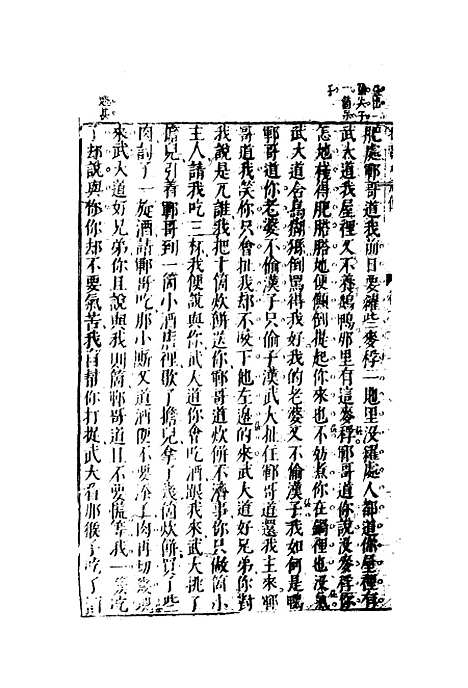 肥處鄆哥道我前日要糴些麥稃一地里没糴處人都道你屋裡有
武大道我屋裡又不養鵝鴨那里有這麥稃鄆哥道你說没麥稃你
怎地棧得肥䐛䐛地便顛倒提起你來也不妨煮你在鍋裡也没氣
武大道含鳥猢猻倒罵得我好我的老婆又不偷漢子我如何是鴨
鄆哥道你老婆不偷漢子只偷子漢武大扯住鄆哥道還我主來鄆
哥道我笑你只會扯我却不咬下他左邊的來武大道好兄弟你對
我說是兀誰我把十箇炊餅送你鄆哥道炊餅不濟事你只做箇小
主人請我吃三杯我便說與你武大道你會吃酒跟我來武大挑了
擔兒引着鄆哥到一箇小酒店裡歇了擔兒拿了幾箇炊餅買了些
肉討了一旋酒請鄆哥吃那小厮又道酒便不要添了肉再切幾塊
來武大道好兄弟你且說與我則箇鄆哥道且不要慌等我一發吃
了却說與你你却不要氣苦我自幫你打捉武大看那猴子吃了